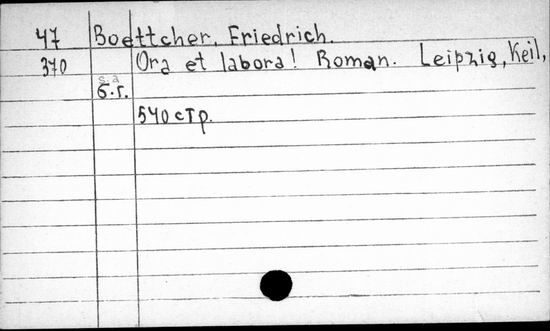 47 Boettcher, Friedrich.
370 Ora et labora! Roman. Leipzig, Keil,
s.a
б.г.
540 стр.